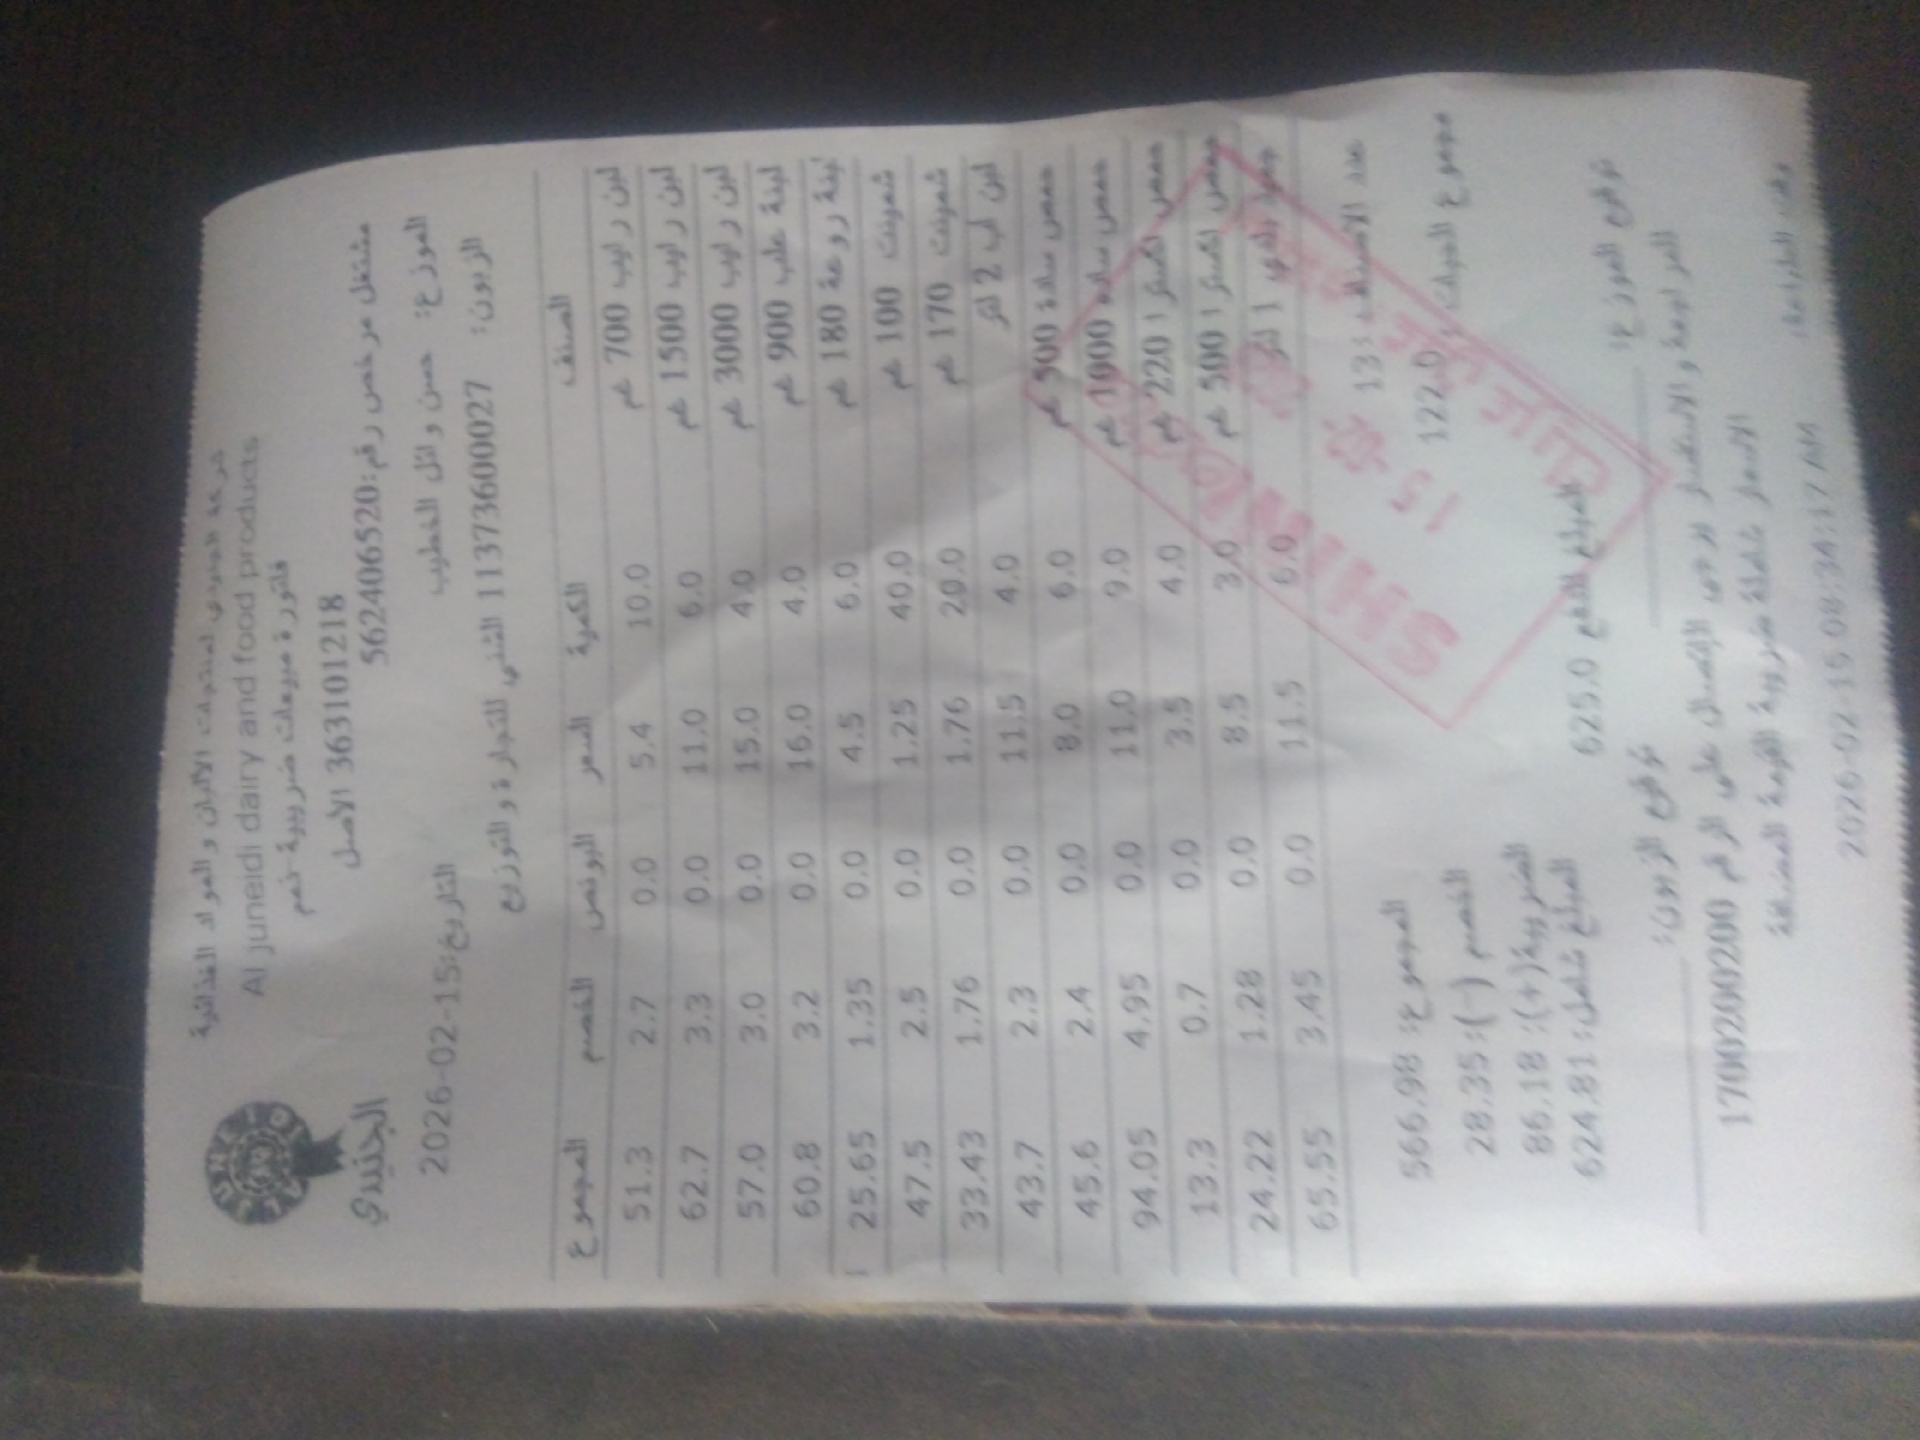 شركة الجنيدي لمنتجات الألبان والمواد الغذائية
Al juneidi dairy and food products
فاتورة مبيعات ضريبية نعم
36310121‎8 الأصل
مشتغل مرخص رقم:562406520
الجنيدي
الموزع: حسن وائل الخطيب
التاريخ:2026-02-15
الزبون: 11373600027 الشني للتجارة و التوزيع
الصنف الكمية السعر البونص الخصم المجموع
لبن رايب 700 غم 10.0 5.4 0.0 2.7 51.3
لبن رايب 1500 غم 6.0 11.0 0.0 3.3 62.7
لبن رايب 3000 غم 4.0 15.0 0.0 3.0 57.0
لبنة علب 900 غم 4.0 16.0 0.0 3.2 60.8
لبنة روعة 180 غم 6.0 4.5 0.0 1.35 25.65
شمينت 100 غم 40.0 1.25 0.0 2.5 47.5
شمينت 170 غم 20.0 1.76 0.0 1.76 33.43
لبن اب 2 لتر 4.0 11.5 0.0 2.3 43.7
حمص سادة 500 غم 6.0 8.0 0.0 2.4 45.6
حمص سادة 1000 غم 9.0 11.0 0.0 4.95 94.05
حمص اكسترا 220 غم 4.0 3.5 0.0 0.7 13.3
حمص اكسترا 500 غم 3.0 8.5 0.0 1.28 24.22
بلدي 1 لتر 6.0 11.5 0.0 3.45 65.55
عدد الاصناف: 13
المجموع: 566.98
مجموع الحبات: 122.0
الخصم (-): 28.35
الضريبة(+): 86.18
المبلغ شامل: 624.81
المبلغ للدفع 625.0
توقيع الموزع:
توقيع الزبون:
للمراجعة و الاستفسار لارجى الإتصال على الرقم 1700200200
الاسعار شاملة ضريبة القيمة المضافة
وقت الطباعة: 2026-02-15 08:34:17 AM
15